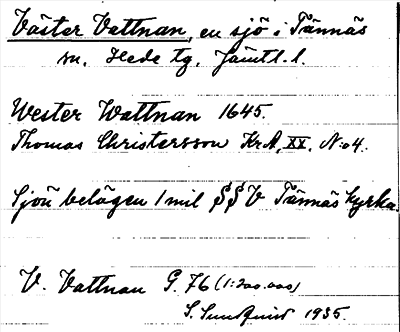 Väster Vattnan, en sjö i Tännäs
sn. Hede tg. Jämtl. l.
Wester Wattnan 1645.
Thomas Christersson KrA, XX, N:o 4.
Sjön belägen 1 mil SSV Tännäs kyrka.
V. Vattnan G. 76 (1:200.000)
S. Sundquist 1935.